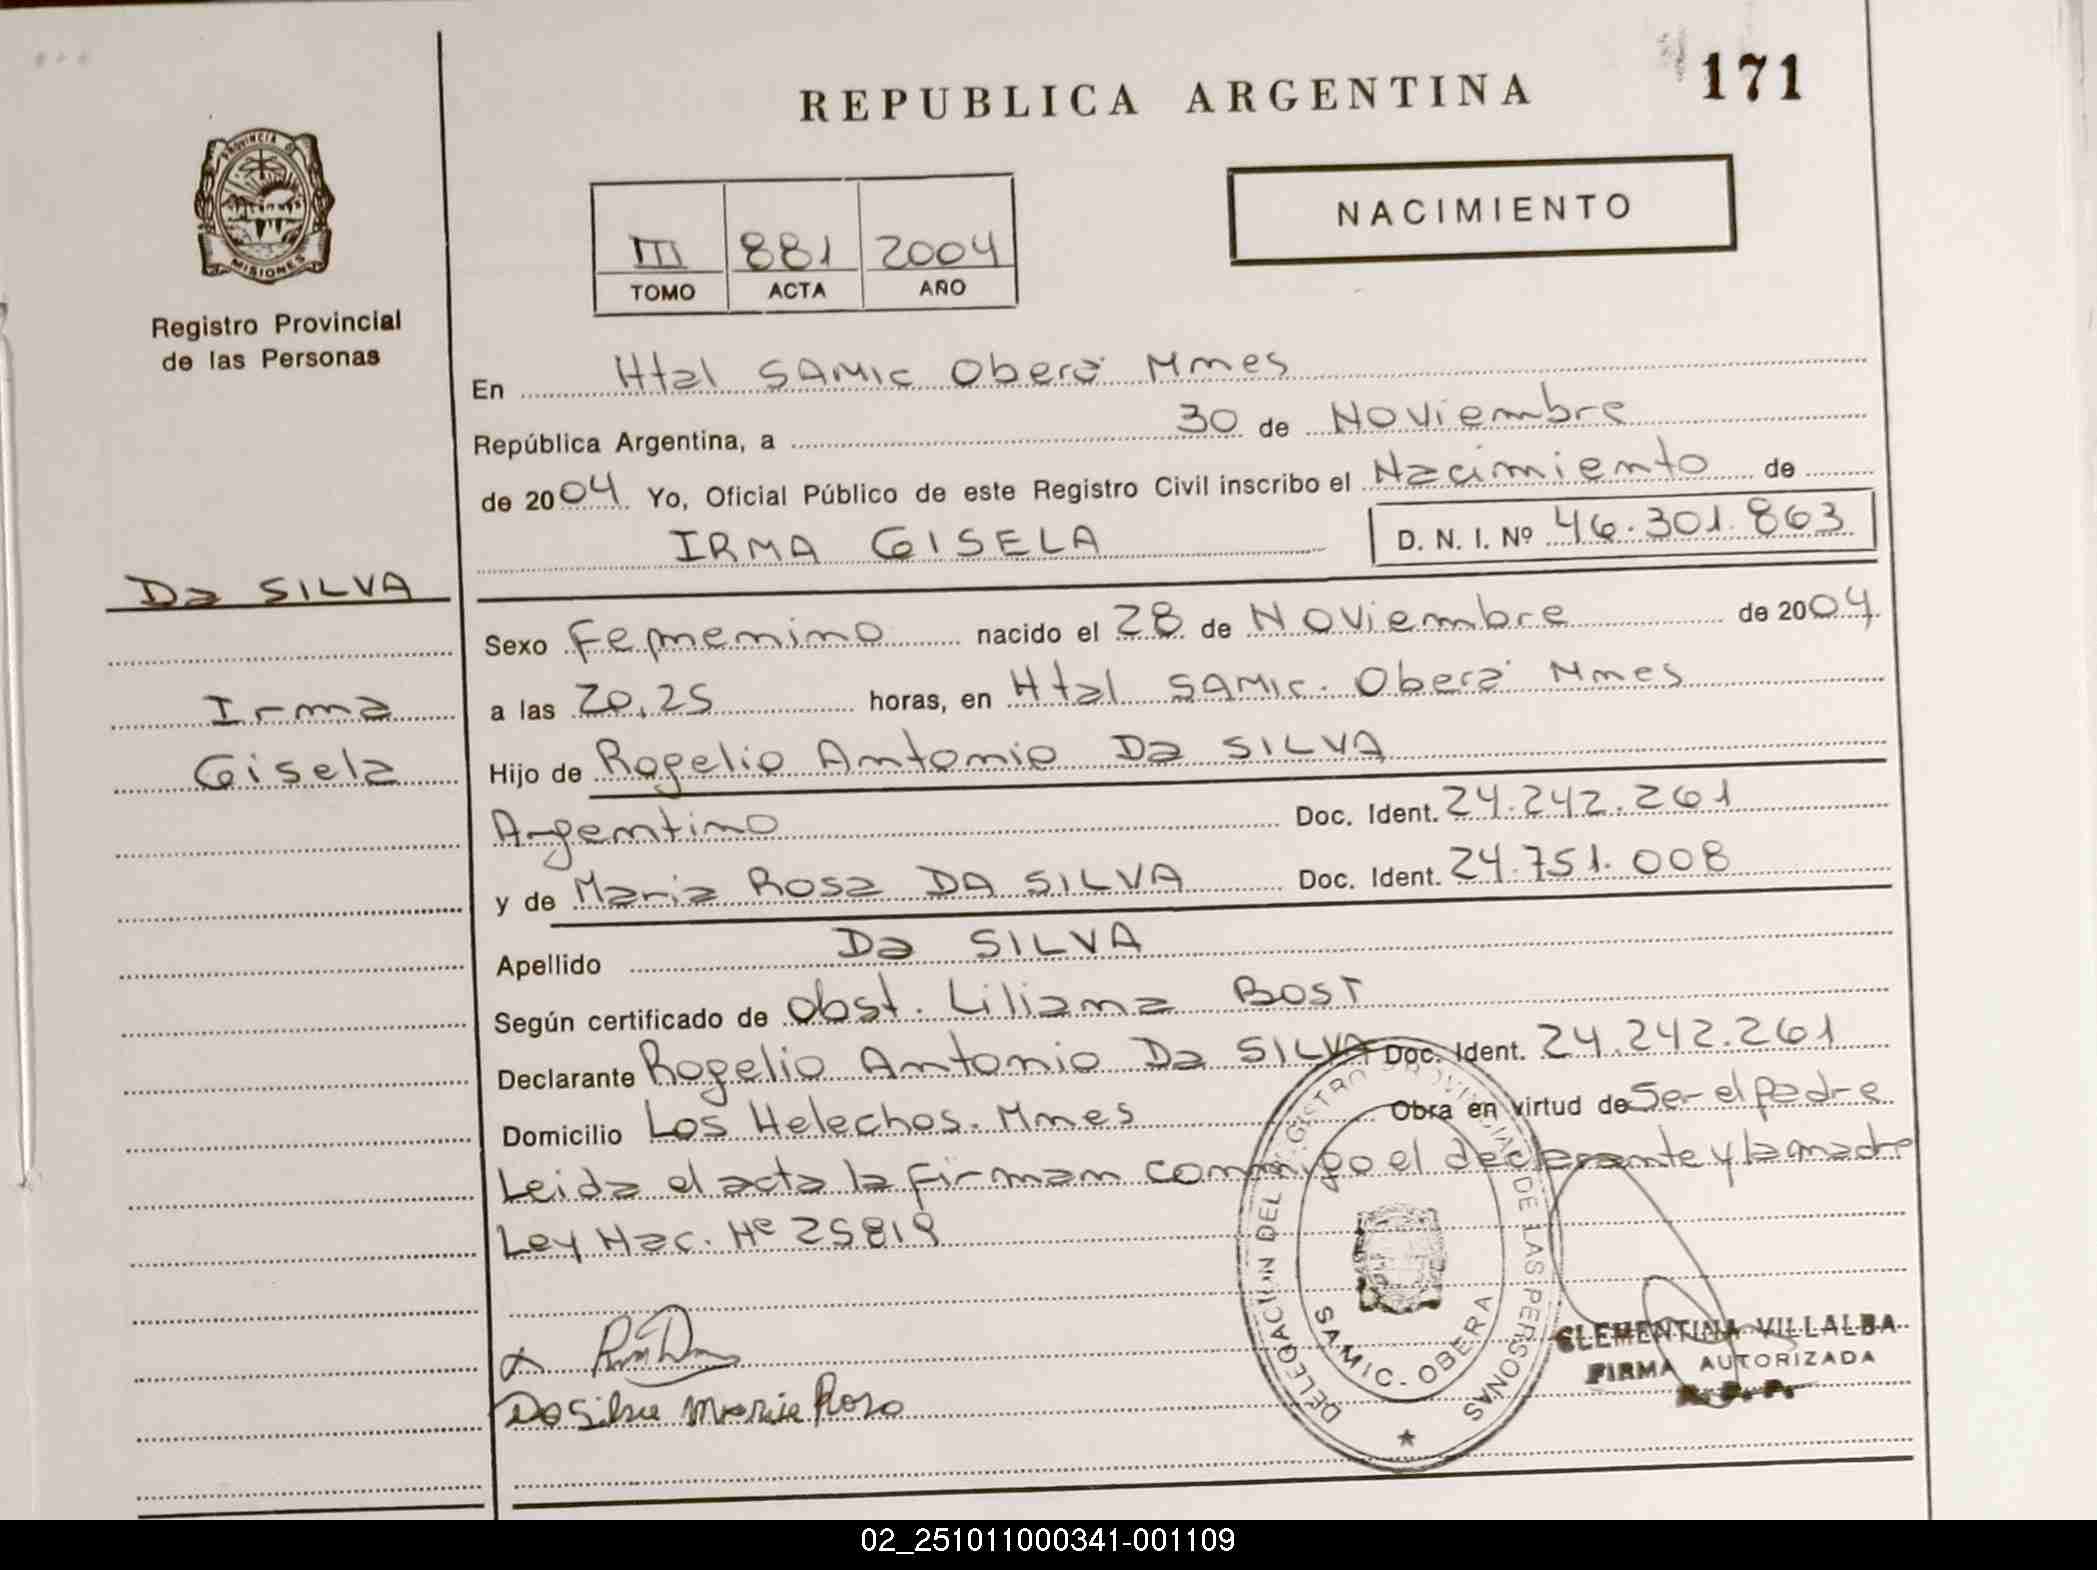 REPUBLICA ARGENTINA
171
PROVINCIA DE
MISIONES
Registro Provincial
de las Personas
III 881 2004
TOMO ACTA AÑO
NACIMIENTO
En Htal SAMIC Oberá Mnes
República Argentina, a 30 de Noviembre
de 2004 Yo, Oficial Público de este Registro Civil inscribo el Nacimiento de
IRMA GISELA D. N. I. Nº 46.301.863
Da SILVA
Irma
Gisela
Sexo Femenino nacido el 28 de Noviembre de 2004
a las 20,25 horas, en Htal SAMIC. Oberá Mnes
Hijo de Rogelio Antonio Da SILVA
Argentino Doc. Ident. 24.242.261
y de Maria Rosa DA SILVA Doc. Ident. 24.751.008
Apellido Da SILVA
Según certificado de Obst. Liliana BOST
Declarante Rogelio Antonio Da SILVA Doc. Ident. 24.242.261
Domicilio Los Helechos. Mnes Obra en virtud de Ser el padre
Leida el acta la firman conmigo el declarante y la madre
Ley Nac. Nº 25819
Da Silva Maria Rosa
DELEGACION DEL REGISTRO PROVINCIAL DE LAS PERSONAS
SAMIC. OBERA
CLEMENTINA VILLALBA
FIRMA AUTORIZADA
R. P. P.
02_251011000341-001109